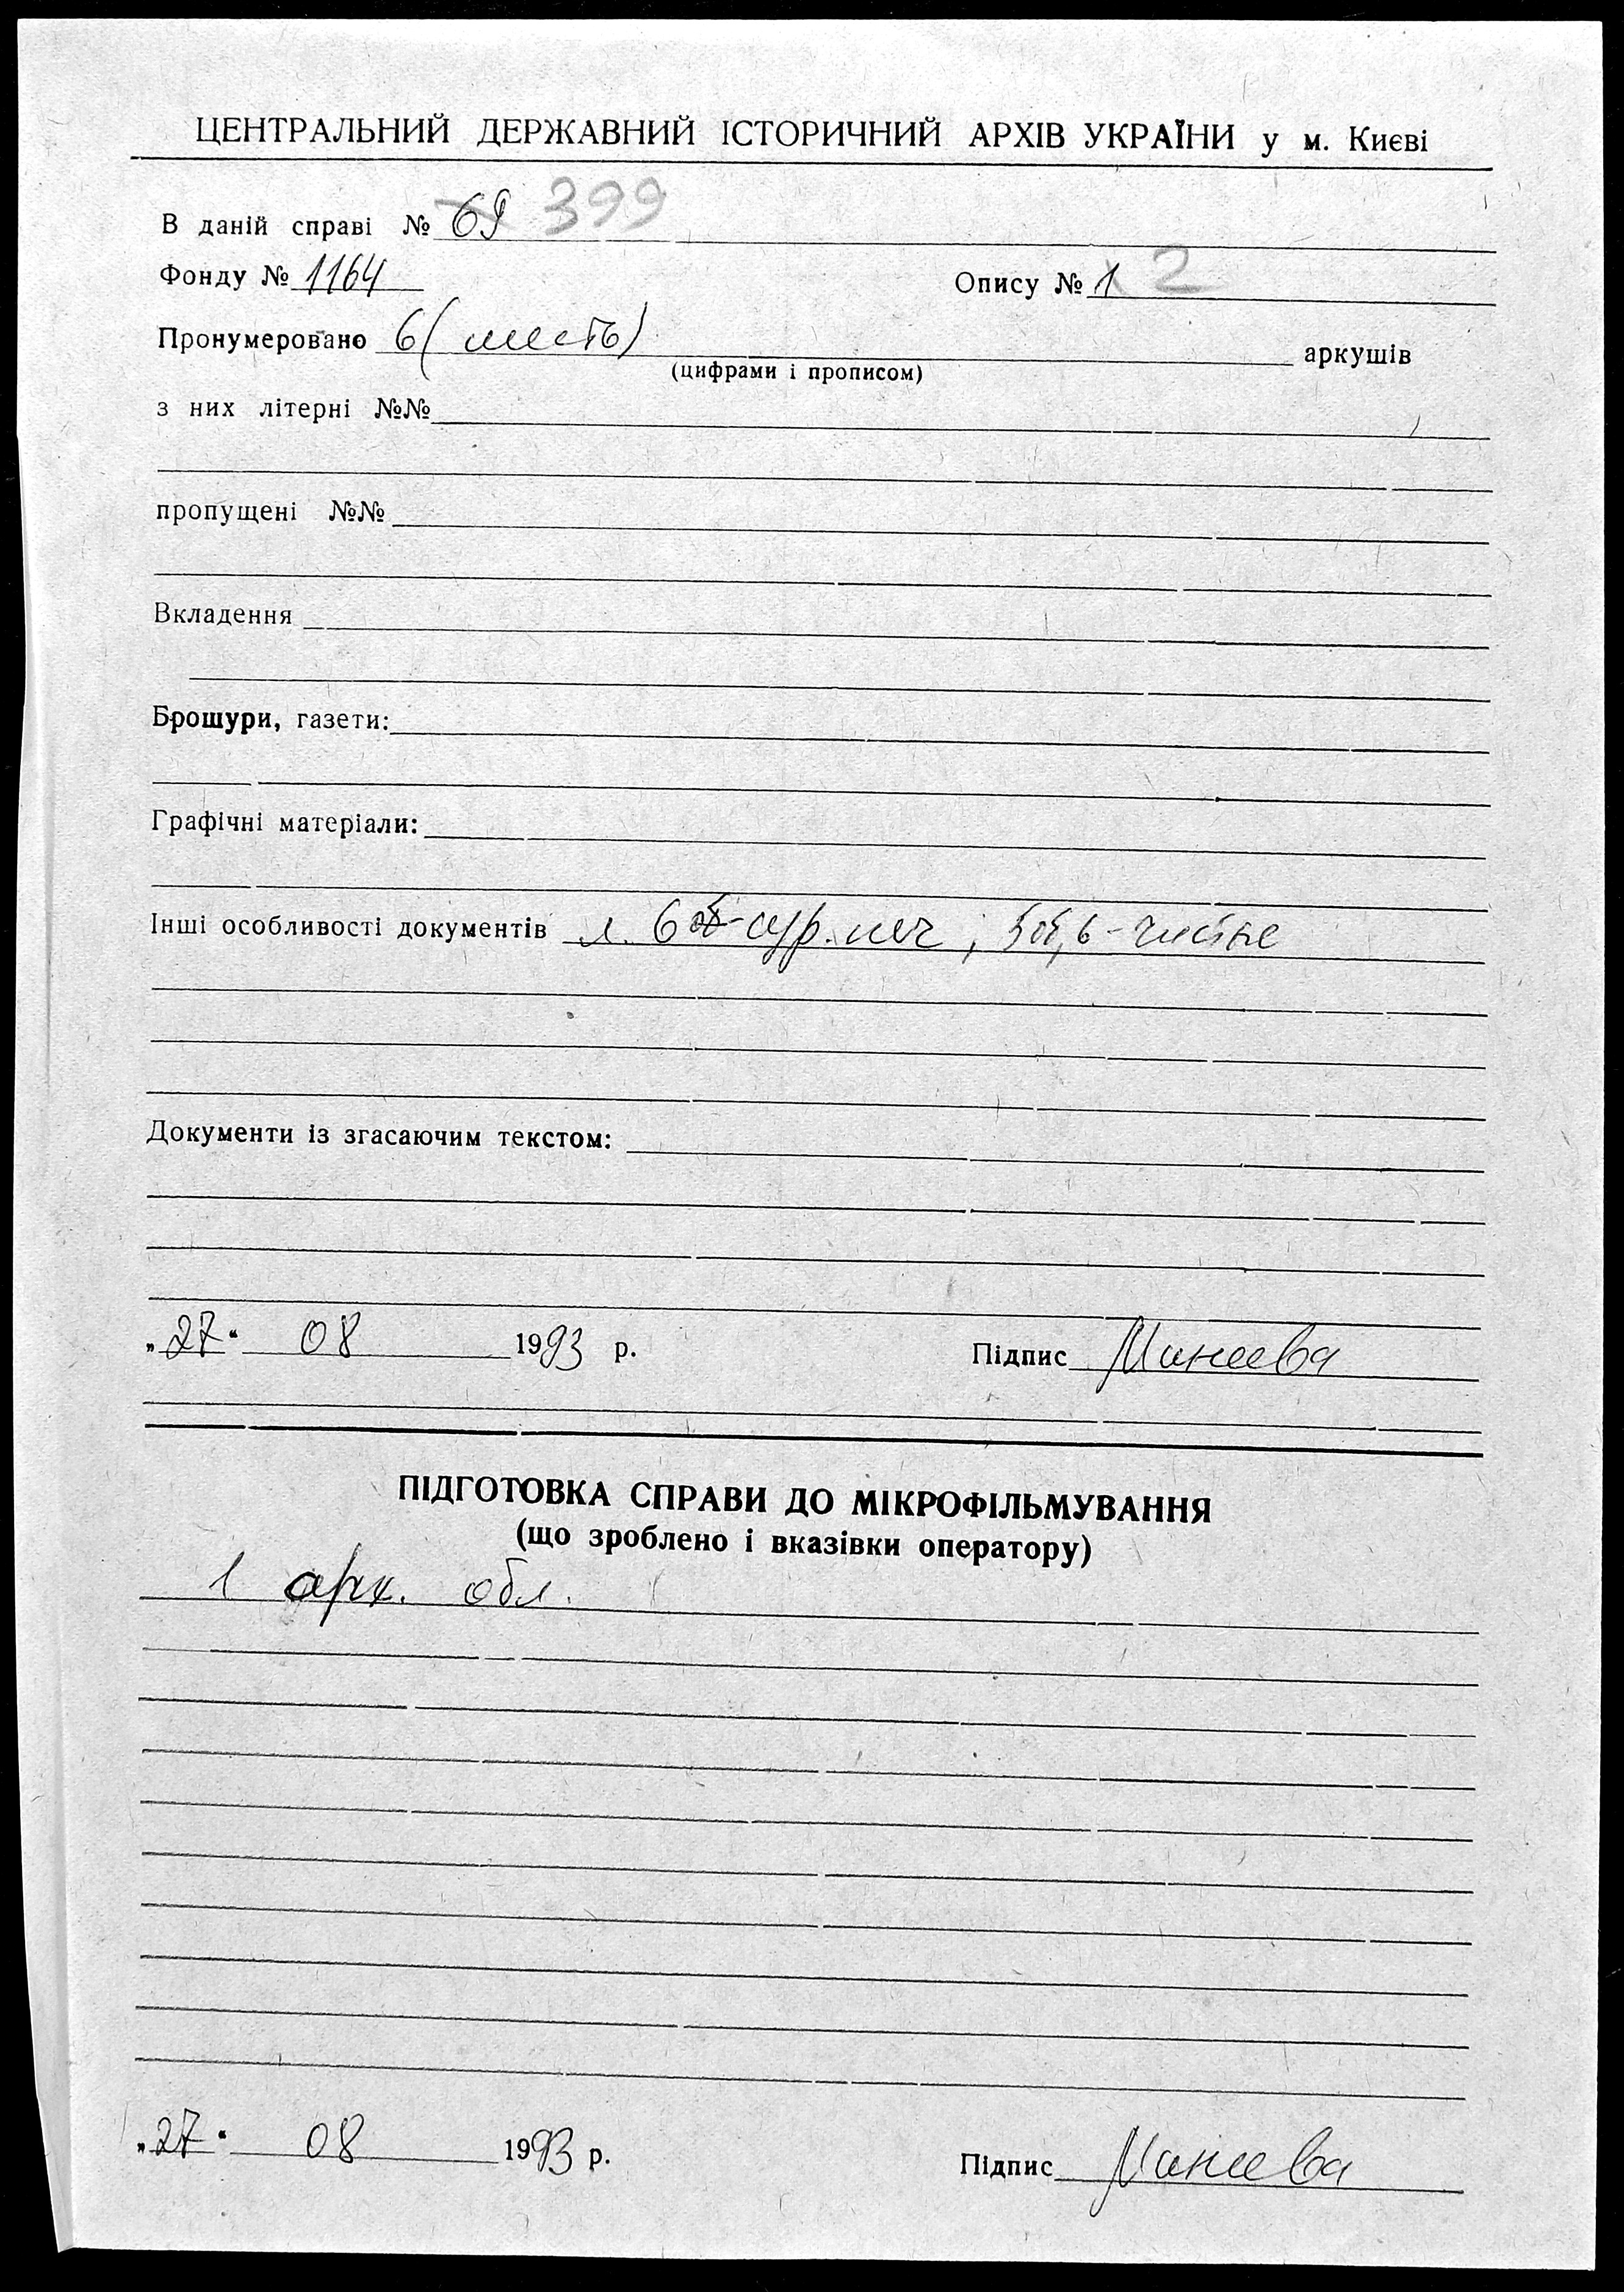 ЦЕНТРАЛЬНИЙ ДЕРЖАВНИЙ ІСТОРИЧНИЙ АРХІВ УКРАЇНИ у м. Києві
В даній справі № 69 399
Фонду № 1164 Опису № 1 2
Пронумеровано 6 (шесть) аркушів
(цифрами і прописом)
з них літерні №№
пропущені №№
Вкладення
Брошури, газети:
Графічні матеріали:
Інші особливості документів л. 6об-сург. печ; 5об, 6-чистые
Документи із згасаючим текстом:
„27“ 08 1993 р. Підпис Минеева
ПІДГОТОВКА СПРАВИ ДО МІКРОФІЛЬМУВАННЯ
(що зроблено і вказівки оператору)
1 арк. обл.
„27“ 08 1993 р. Підпис Минеева